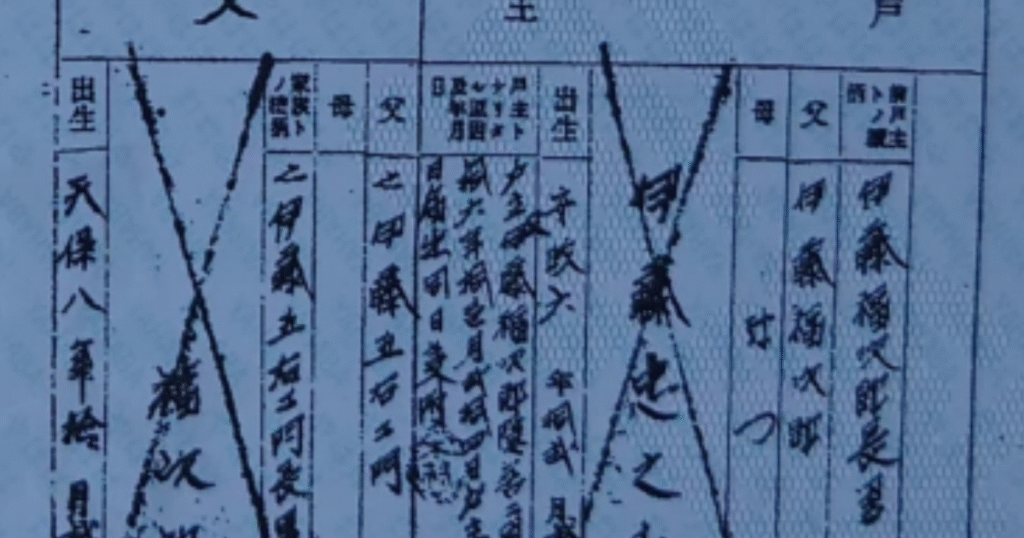 戸主
前戸主トノ續柄
伊藤福次郎長男
父
伊藤福次郎
母
伊藤忠之
出生
安政六年拾弐月
戸主トナリタル原因及ヒ年月日
戸主伊藤福次郎隠居
拾六年拾壱月弐拾四日戸主
日届出同日受附
父
亡伊藤五右エ門
母
家族トノ續柄
亡伊藤五右エ門長男
父
福次郎
出生
天保八年拾月弐